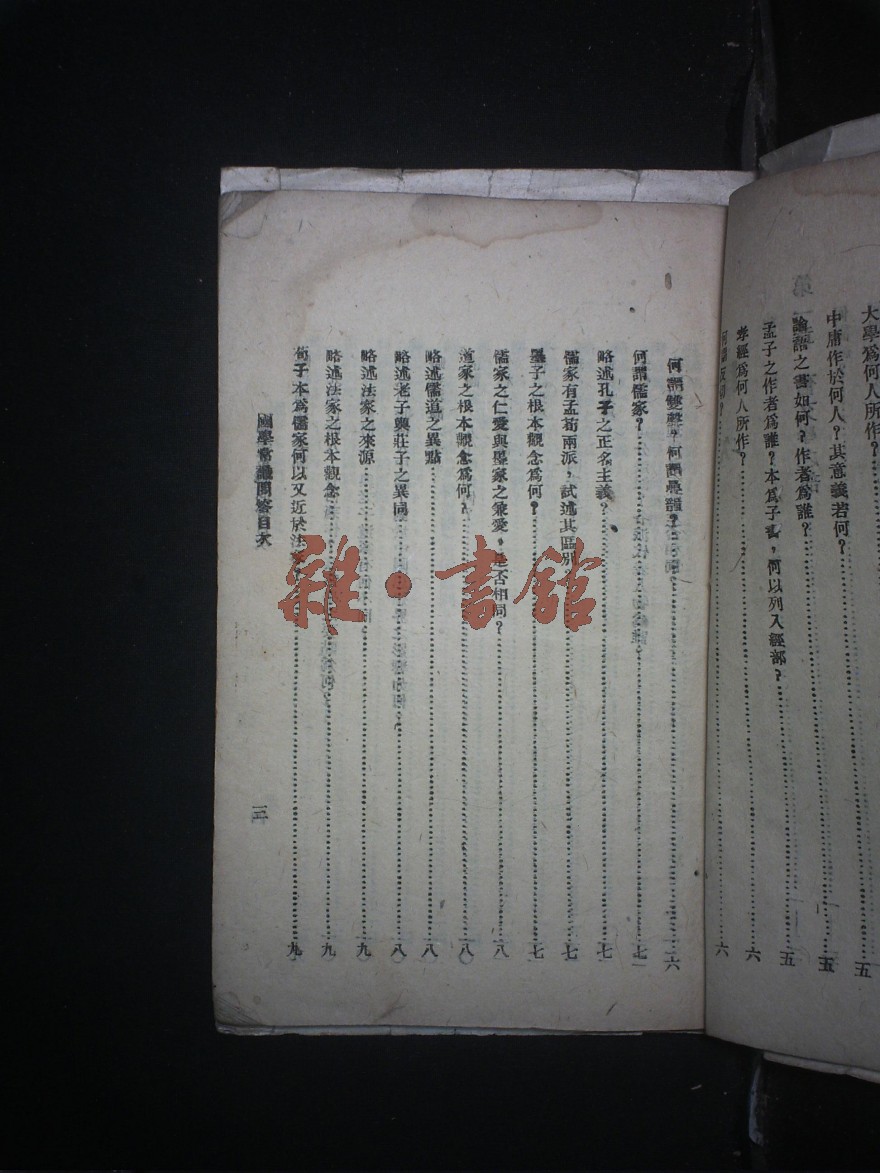 大學爲何人所作?……五
中庸作於何人?其意義若何?……五
論語之書如何?作者爲誰?……五
孟子之作者爲誰?本爲子書,何以列入經部?……六
孝經爲何人所作?……六
何謂反切?……六
何謂雙聲?何謂疊韻?……六
何謂儒家?……七
略述孔子之正名主義?……七
儒家有孟荀兩派,試述其區別?……七
墨子之根本觀念爲何?……七
儒家之仁愛與墨家之兼愛,是否相同?……八
道家之根本觀念爲何?……八
略述儒道之異點……八
略述老子與莊子之異同……八
略述法家之來源……九
略述法家之根本觀念……九
荀子本爲儒家何以又近於法……九
國學常識問答目次
雜·書館